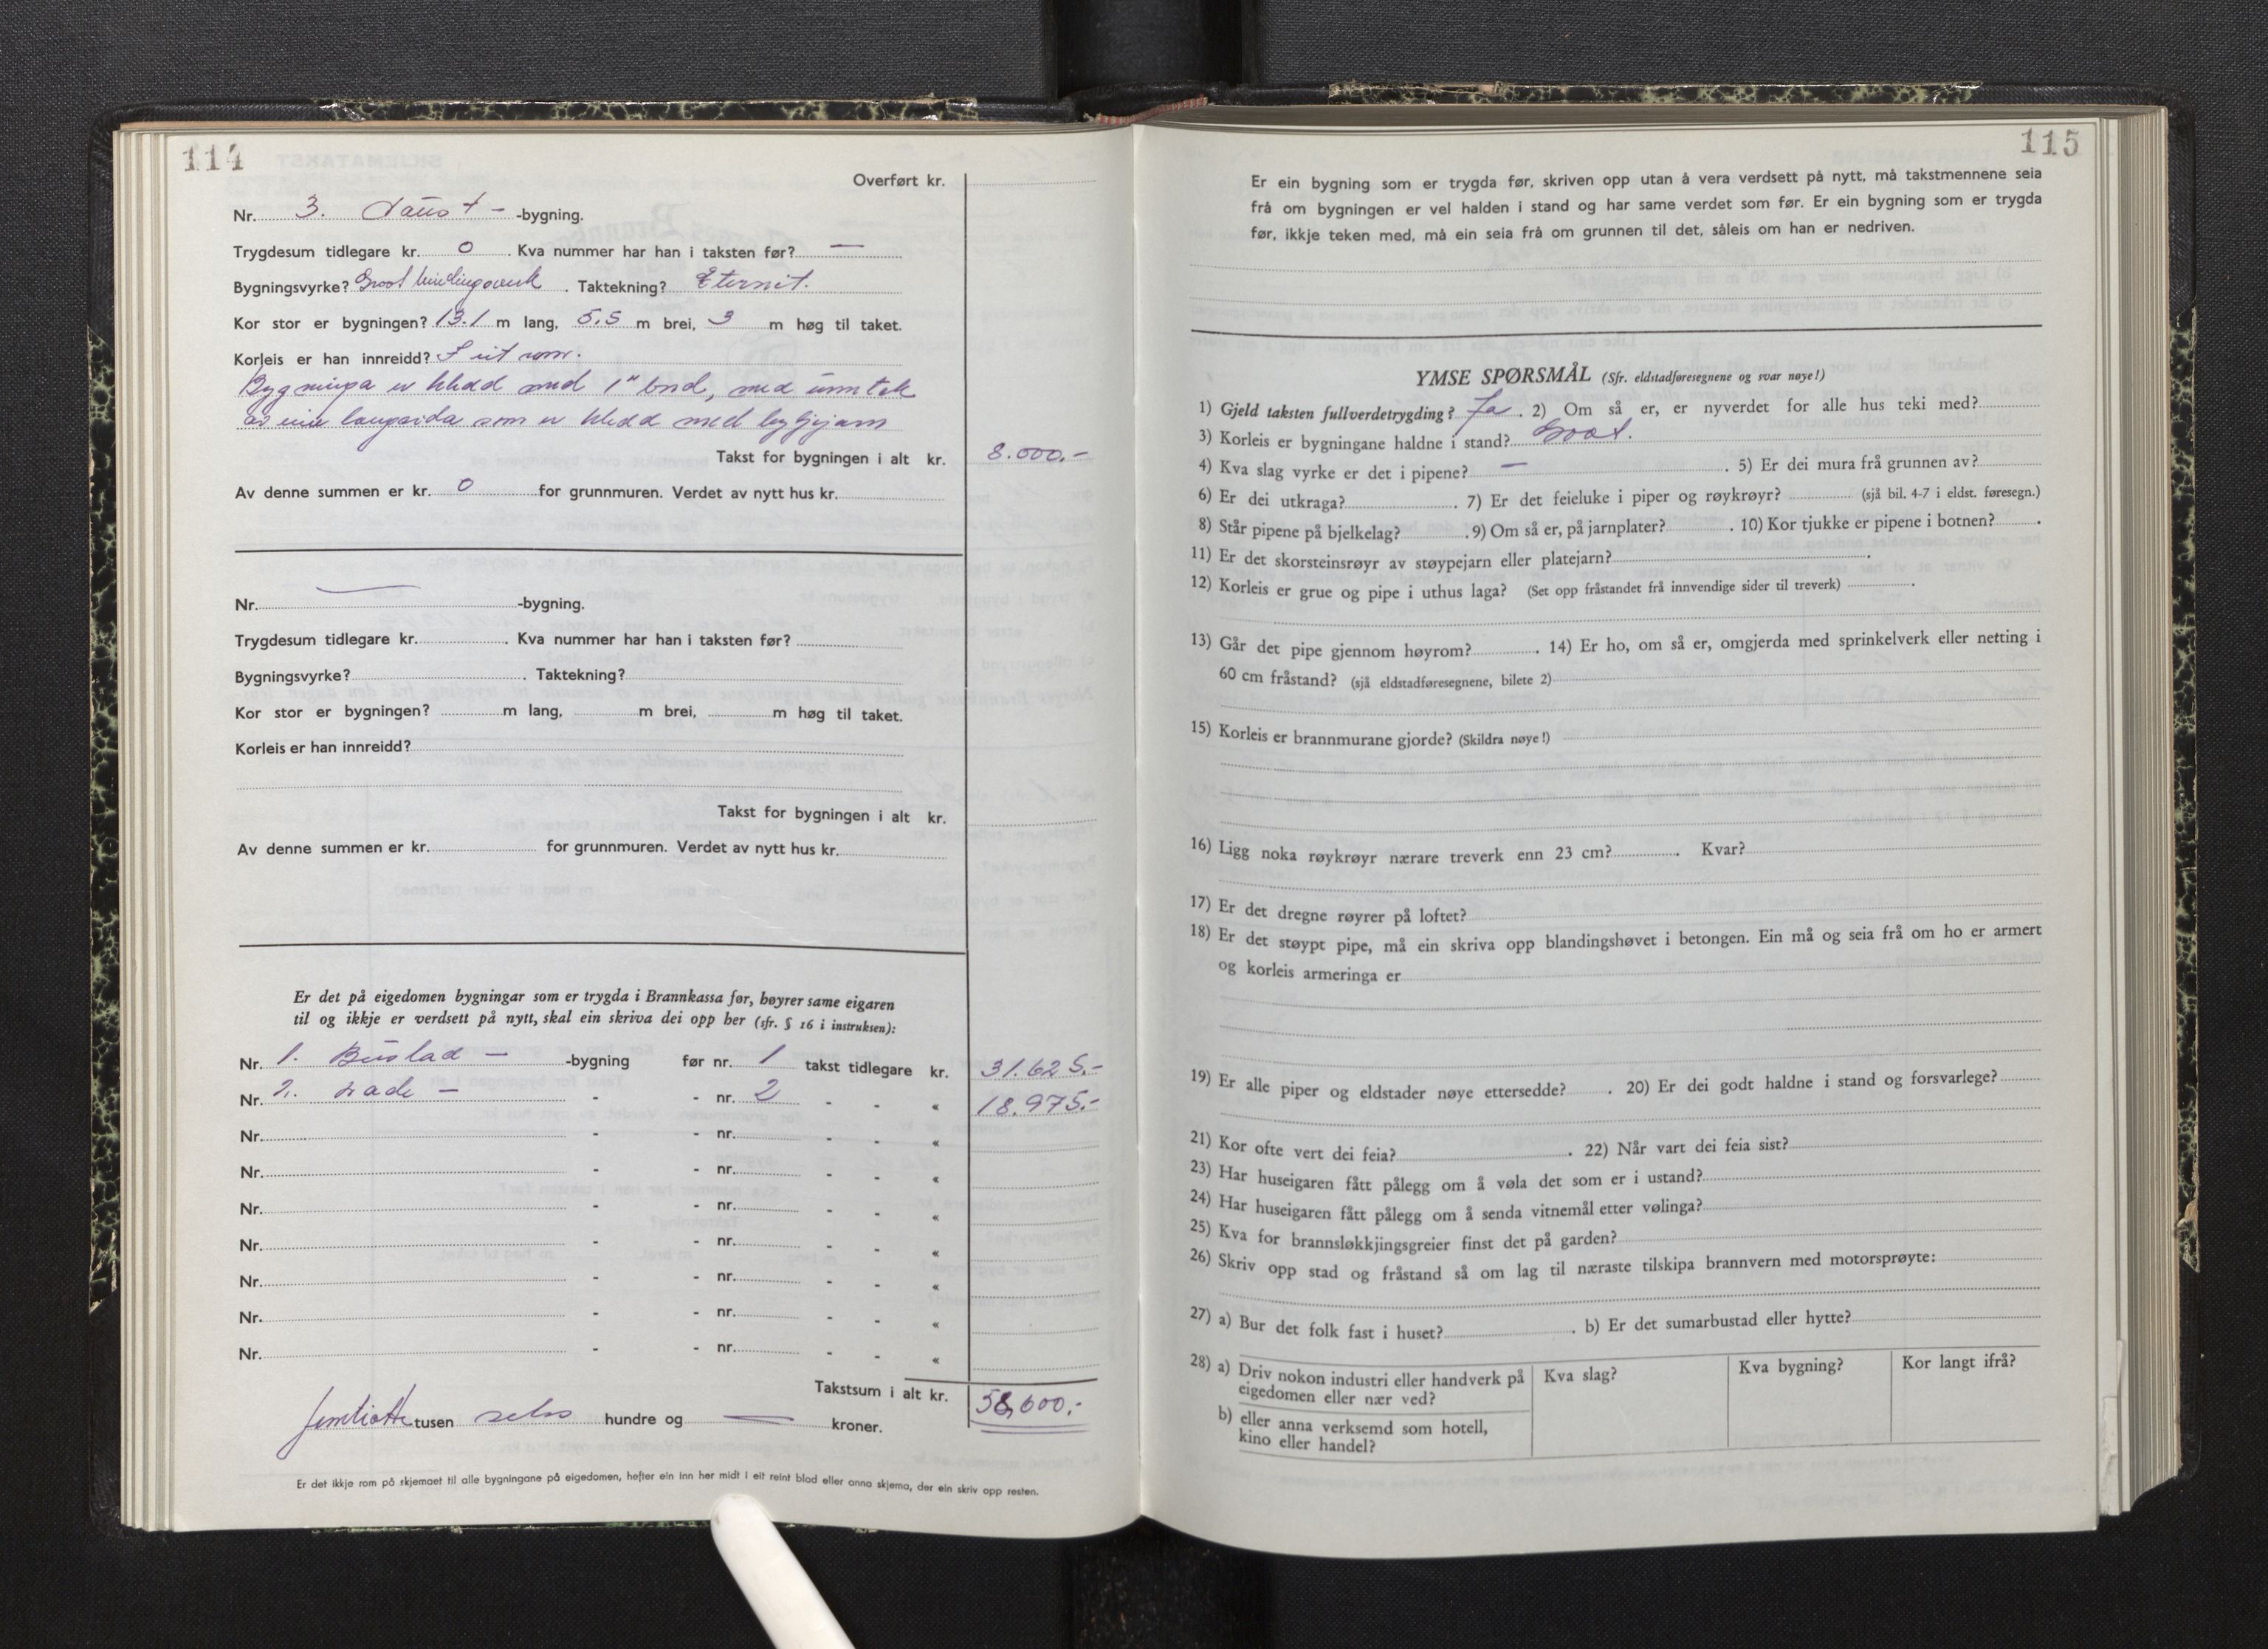 114
Overført kr.
Nr. 3. Naust - -bygning.
Trygdesum tidlegare kr. 0 . Kva nummer har han i taksten før? —
Bygningsvyrke? Godt bindingsverk . Taktekning? Eternit.
Kor stor er bygningen? 13.1 m lang, 5,5 m brei, 3 m høg til taket.
Korleis er han innreidd? I eit rom.
Bygninga er kledd med 1" bord, med unntak
av ein langsida som er kledd med bylgjejarn
Takst for bygningen i alt kr. 8.000.-
Av denne summen er kr. 0 for grunnmuren. Verdet av nytt hus kr.
Nr. — -bygning.
Trygdesum tidlegare kr. . Kva nummer har han i taksten før?
Bygningsvyrke? . Taktekning?
Kor stor er bygningen? m lang, m brei, m høg til taket.
Korleis er han innreidd?
Takst for bygningen i alt kr.
Av denne summen er kr. for grunnmuren. Verdet av nytt hus kr.
Er det på eigedomen bygningar som er trygda i Brannkassa før, høyrer same eigaren
til og ikkje er verdsett på nytt, skal ein skriva dei opp her (sfr. § 16 i instruksen):
Nr. 1. Bustad - -bygning før nr. 1 takst tidlegare kr. 31.625.-
Nr. 2. Løde - - - nr. 2 - - « 18.975.-
Nr. - - nr. - - «
Nr. - - nr. - - «
Nr. - - nr. - - «
Nr. - - nr. - - «
Nr. - - nr. - - «
Nr. - - nr. - - «
Nr. - - nr. - - «
Takstsum i alt kr. 58,600.-
femtiotte tusen seks hundre og — kroner.
Er det ikkje rom på skjemaet til alle bygningane på eigedomen, hefter ein inn her midt i eit reint blad eller anna skjema, der ein skriv opp resten.
115
Er ein bygning som er trygda før, skriven opp utan å vera verdsett på nytt, må takstmennene seia
frå om bygningen er vel halden i stand og har same verdet som før. Er ein bygning som er trygda
før, ikkje teken med, må ein seia frå om grunnen til det, såleis om han er nedriven.
YMSE SPØRSMÅL (Sfr. eldstadføresegnene og svar nøye!)
1) Gjeld taksten fullverdetrygding? Ja . 2) Om så er, er nyverdet for alle hus teki med?
3) Korleis er bygningane haldne i stand? Godt.
4) Kva slag vyrke er det i pipene? — . 5) Er dei mura frå grunnen av?
6) Er dei utkraga? . 7) Er det feieluke i piper og røykrøyr? (sjå bil. 4-7 i eldst. føresegn.)
8) Står pipene på bjelkelag? . 9) Om så er, på jarnplater? . 10) Kor tjukke er pipene i botnen? .
11) Er det skorsteinsrøyr av støypejarn eller platejarn? .
12) Korleis er grue og pipe i uthus laga? (Set opp fråstandet frå innvendige sider til treverk) .
13) Går det pipe gjennom høyrom? . 14) Er ho, om så er, omgjerda med sprinkelverk eller netting i
60 cm fråstand? (sjå eldstadføresegnene, bilete 2)
15) Korleis er brannmurane gjorde? (Skildra nøye!)
16) Ligg noka røykrøyr nærare treverk enn 23 cm? . Kvar?
17) Er det dregne røyrer på loftet?
18) Er det støypt pipe, må ein skriva opp blandingshøvet i betongen. Ein må og seia frå om ho er armert
og korleis armeringa er
19) Er alle piper og eldstader nøye ettersedde? . 20) Er dei godt haldne i stand og forsvarlege?
21) Kor ofte vert dei feia? . 22) Når vart dei feia sist?
23) Har huseigaren fått pålegg om å vøla det som er i ustand?
24) Har huseigaren fått pålegg om å senda vitnemål etter vølinga?
25) Kva for brannsløkkjingsgreier finst det på garden?
26) Skriv opp stad og fråstand så om lag til næraste tilskipa brannvern med motorsprøyte:
27) a) Bur det folk fast i huset? . b) Er det sumarbustad eller hytte?
28) a) Driv nokon industri eller handverk på eigedomen eller nær ved? Kva slag? Kva bygning? Kor langt ifrå?
b) eller anna verksemd som hotell,
kino eller handel?